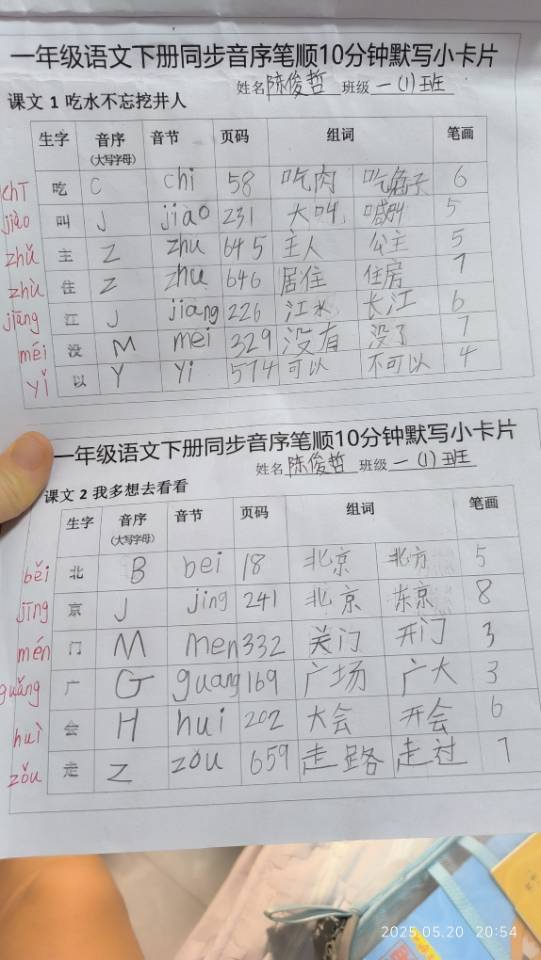 一年级语文下册同步音序笔顺10分钟默写小卡片
姓名 陈俊哲 班级 一(1)班
课文 1 吃水不忘挖井人
生字 音序 音节 页码 组词 笔画
(大写字母)
chī 吃 C chi 58 吃肉 吃 6
jiào 叫 J jiao 231 大叫 喊叫 5
zhǔ 主 Z zhu 645 主人 公主 5
zhù 住 Z zhu 646 居住 住房 7
jiāng 江 J jiang 226 江水 长江 6
méi 没 M mei 329 没有 没了 7
yǐ 以 Y yi 574 可以 不可以 4
一年级语文下册同步音序笔顺10分钟默写小卡片
姓名 陈俊哲 班级 一(1)班
课文 2 我多想去看看
生字 音序 音节 页码 组词 笔画
(大写字母)
běi 北 B bei 18 北京 北方 5
jīng 京 J jing 241 北京 东京 8
mén 门 M men 332 关门 开门 3
guǎng 广 G guang 169 广场 广大 3
huì 会 H hui 202 大会 开会 6
zǒu 走 Z zǒu 659 走路 走过 7
2025.05.20 20:54